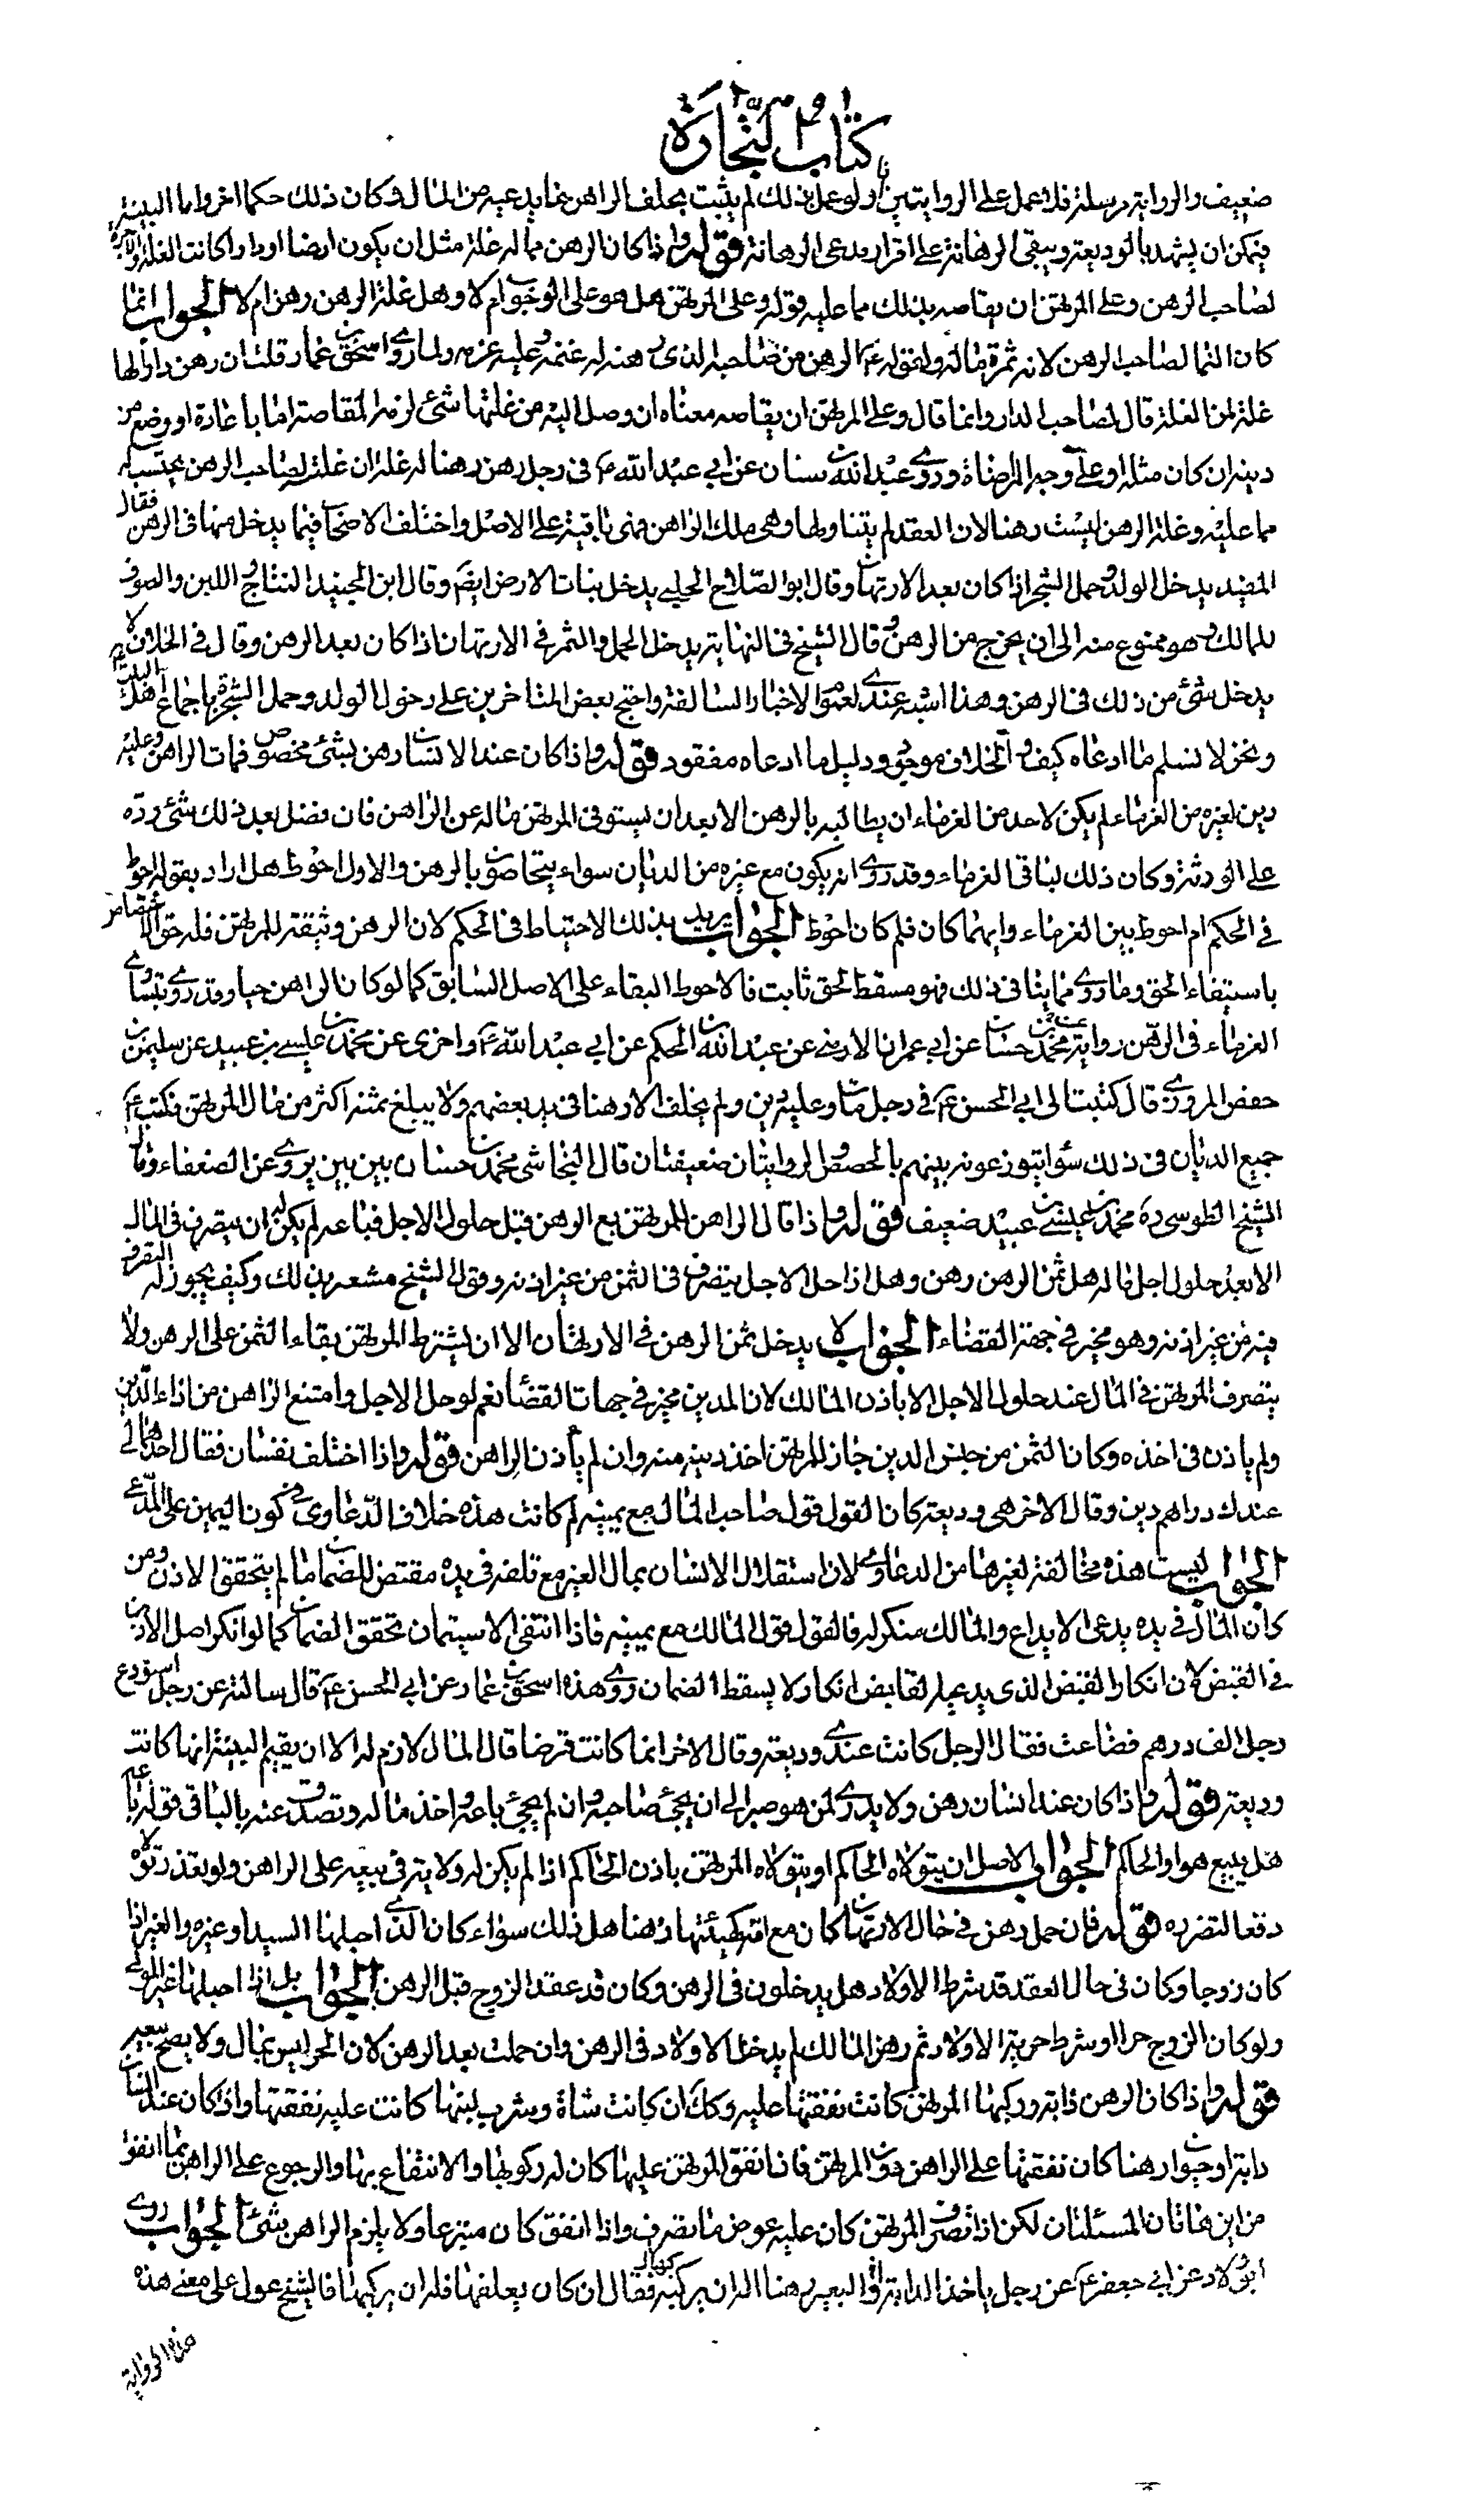 كتاب التجارة
ضعيف والرواية مرسلة فلا عمل على الروايتين ولو عمل بذلك لم يثبت بحلف الراهن بما يدعيه من المال وكان ذلك حكما اخر واما البينة
فيمكن ان يشهد بالوديعة ويبقى الرهانة على اقرار مدعى الرهانة قوله واذا كان الرهن مما له غلة مثل ان يكون ارضا او دارا كانت الغلة والاجرة
لصاحب الرهن وعلى المرتهن ان يقاصه بذلك مما عليه قوله وعلى المرتهن هل هو على الوجوب ام لا وهل غلة الرهن رهن ام لا الجواب انما
كان النما لصاحب الرهن لانه ثمرة ماله ولقوله ع الرهن من صاحبه الذى رهنه له غنمه وعليه غرمه ولما روى اسحق بن عمار قلت ان رهن دارا لها
غلة لمن الغلة قال لصاحب الدار وانما قال وعلى المرتهن ان يقاصه معناه ان وصل اليه من غلتها شئ لزمه المقاصة اما باعادة او وضع من
دينه ان كان مثله او على وجه المرضاة وروى عبد الله بن سنان عن ابي عبد الله ع في رجل رهن رهنا له غلة ان غلته لصاحب الرهن يحتسب له
مما عليه وغلة الرهن ليست رهنا لان العقد لم يتناولها وهي ملك الراهن فهى باقية على الاصل واختلف الاصحاب فيما يدخل منها فى الرهن فقال
المفيد يدخل الولد وحمل الشجر اذا كان بعد الارتهان وقال ابو الصلاح الحلبي يدخل بنات الارض ايضا وقال ابن الجنيد النتاج واللبن والصوف
للمالك وهو ممنوع منه الى ان يخرج من الرهن وقال الشيخ فى النهاية يدخل الحمل والثمر فى الارتهان اذا كان بعد الرهن وقال فى الخلاف لا
يدخل شئ من ذلك فى الرهن وهذا اشبه عندي لعموم الاخبار السالفة واحتج بعض المتاخرين على دخول الولد وحمل الشجرة باجماع اهل البيت
ونحن لا نسلم ما ادعاه كيف والخلاف موجود ودليل ما ادعاه مفقود قوله واذا كان عند الانسان رهن بشئ مخصوص فمات الراهن وعليه
دين لغيره من الغرماء لم يكن لاحد من الغرماء ان يطالبه بالرهن الا بعد ان يستوفى المرتهن ماله عن الراهن فان فضل بعد ذلك شئ رده
على الورثة وكان ذلك لباقى الغرماء وقد روى انه يكون مع غيره من الديان سواء يتحاصون بالرهن والاول احوط هل اراد بقوله احوط
في الحكم ام احوط بين الغرماء وايهما كان فلم كان احوط الجواب يريد بذلك الاحتياط فى الحكم لان الرهن وثيقة للمرتهن فله حق الاختصاص
باستيفاء الحق وما روى مما ينافى ذلك فهو مسقط لحق ثابت فالاحوط البقاء على الاصل السابق كما لو كان الراهن حيا وقد روى بتساوى
الغرماء فى الرهن رواية عن محمد بن حسان عن ابي عمران الارمنى عن عبد الله بن الحكم عن ابي عبد الله ع واخرى عن محمد بن عيسى بن عبيد عن سليمن بن
حفص المروزى قال كتبت الى ابى الحسن ع في رجل مات وعليه دين ولم يخلف الا رهنا فى يد بعضهم ولا يبلغ ثمنه اكثر من مال المرتهن فكتب ع
جميع الديان فى ذلك سواء يتوزعونه بينهم بالحصص والروايتان ضعيفتان قال النجاشى محمد بن حسان بين بين يروى عن الضعفاء وقال
الشيخ الطوسى ره محمد بن عيسى بن عبيد ضعيف قوله واذا قال الراهن للمرتهن بع الرهن قبل حلول الاجل فباعه لم يكن له ان يتصرف فى المال
الا بعد حلول اجل ماله هل ثمن الرهن رهن وهل اذا حل الاجل يتصرف فى الثمن من غير اذنه وقول الشيخ مشعر بذلك وكيف يجوز له التصرف
فيه من غير اذنه وهو مخير في جهة القضاء الجواب لا يدخل ثمن الرهن في الارتهان الا ان يشترط المرتهن بقاء الثمن على الرهن ولا
يتصرف المرتهن فى المال عند حلول الاجل الا باذن المالك لان المدين مخير في جهات القضا نعم لو حل الاجل وامتنع الراهن من اداء الدين
ولم ياذن فى اخذه وكان الثمن من جنس الدين جاز للمرتهن اخذ دينه منه وان لم يأذن الراهن قوله واذا اختلف نفسان فقال احدهما لى
عندك دراهم دين وقال الاخر هى وديعة كان القول قول صاحب المال مع يمينه لم كانت هذه خلاف الدعاوى فى كون اليمين على المدعى
الجواب ليست هذه مخالفة لغيرها من الدعاوى لان استقلال الانسان بمال الغير مع تلفه فى يده مقتض للضمان ما لم يتحقق الاذن ومن
كان المال في يده يدعى الايداع والمالك منكر له فالقول قول المالك مع يمينه فاذا انتفى الاستيمان تحقق الضمان كما لو انكر اصل الاذن
فى القبض لان انكار القبض الذى يدعيه القابض انكار لا يسقط الضمان روى هذه اسحق بن عمار عن ابى الحسن ع قال سالته عن رجل استودع
رجل الف درهم فضاعت فقال الرجل كانت عندى وديعة وقال الاخر انما كانت قرضا قال المال لازم له الا ان يقيم البينة انها كانت
وديعة قوله واذا كان عند انسان رهن ولا يدرى لمن هو صبر الى ان يجئ صاحبه وان لم يجئ باعه واخذ ماله وتصدق عنه بالباقى قوله باعه
هل يبيع هو او الحاكم الجواب الاصل ان يتولاه الحاكم او يتولاه المرتهن باذن الحاكم اذا لم يكن له ولاية فى بيعه على الراهن ولو تعذر تولاه
دفعا لتضرره قوله فان حمل رهن في حال الارتهان كان مع امه كهيئتها رهنا هل ذلك سواء كان الذى احبلها السيد او غيره والغير اذا
كان زوجا وكان فى حال العقد قد شرط الاولاد هل يدخلون فى الرهن وكان قد عقد الزوج قبل الرهن الجواب بل اذا احبلها غير المولى
ولو كان الزوج حرا او شرط حرية الاولاد ثم رهن المالك لم يدخل الاولاد فى الرهن وان حملت بعد الرهن لان الحر ليس بمال ولا يصح بيعه
قوله واذا كان الرهن دابة وركبها المرتهن كانت نفقتها عليه وكك ان كانت شاة وشرب لبنها كانت عليه نفقتها واذا كان عند انسان
دابة او حيوان رهنا كان نفقتها على الراهن دون المرتهن فان انفق المرتهن عليها كان له ركوبها والانتفاع بها والرجوع على الراهن بما انفق
من اين هاتان المسئلتان لكن اذا تصرف المرتهن كان عليه عوض ما تصرف واذا انفق كان متبرعا ولا يلزم الراهن بشئ الجواب روى
ابو ولاد عن ابى جعفر ع عن رجل ياخذ الدابة والبعير رهنا اله ان يركبه فقال ان كان يعلفها فله ان يركبها فالشيخ عول على معنى هذه
هذه الرواية